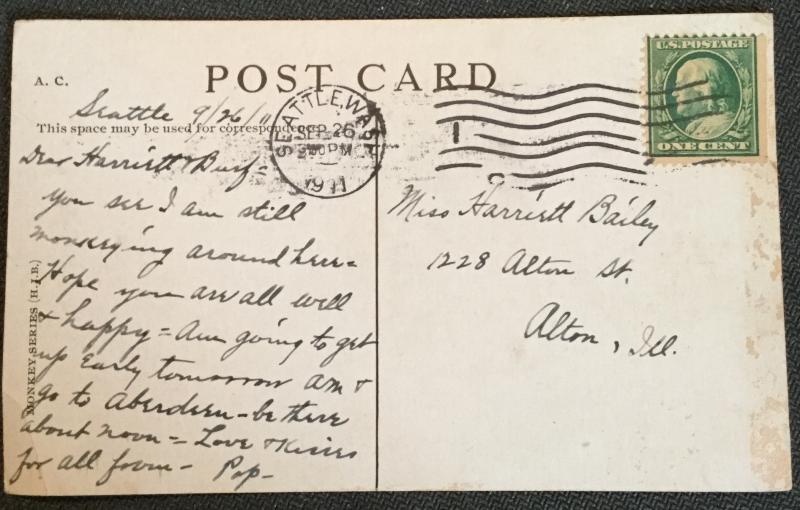 A. C.
POST CARD
U.S. POSTAGE
ONE CENT
SEATTLE, WASH.
SEP 26
PM
1911
Seattle 9/26/11
This space may be used for correspondence
Dear Harriett &
you see I am still
monkeying around here =
Hope you are all well
& happy = Am going to get
up Early tomorrow am &
go to Aberdeen - be there
about noon = Love & Kisses
for all from - Pop -
MONKEY SERIES (H.I.B.)
Miss Harriett Bailey
1228 Alton St.
Alton, Ill.